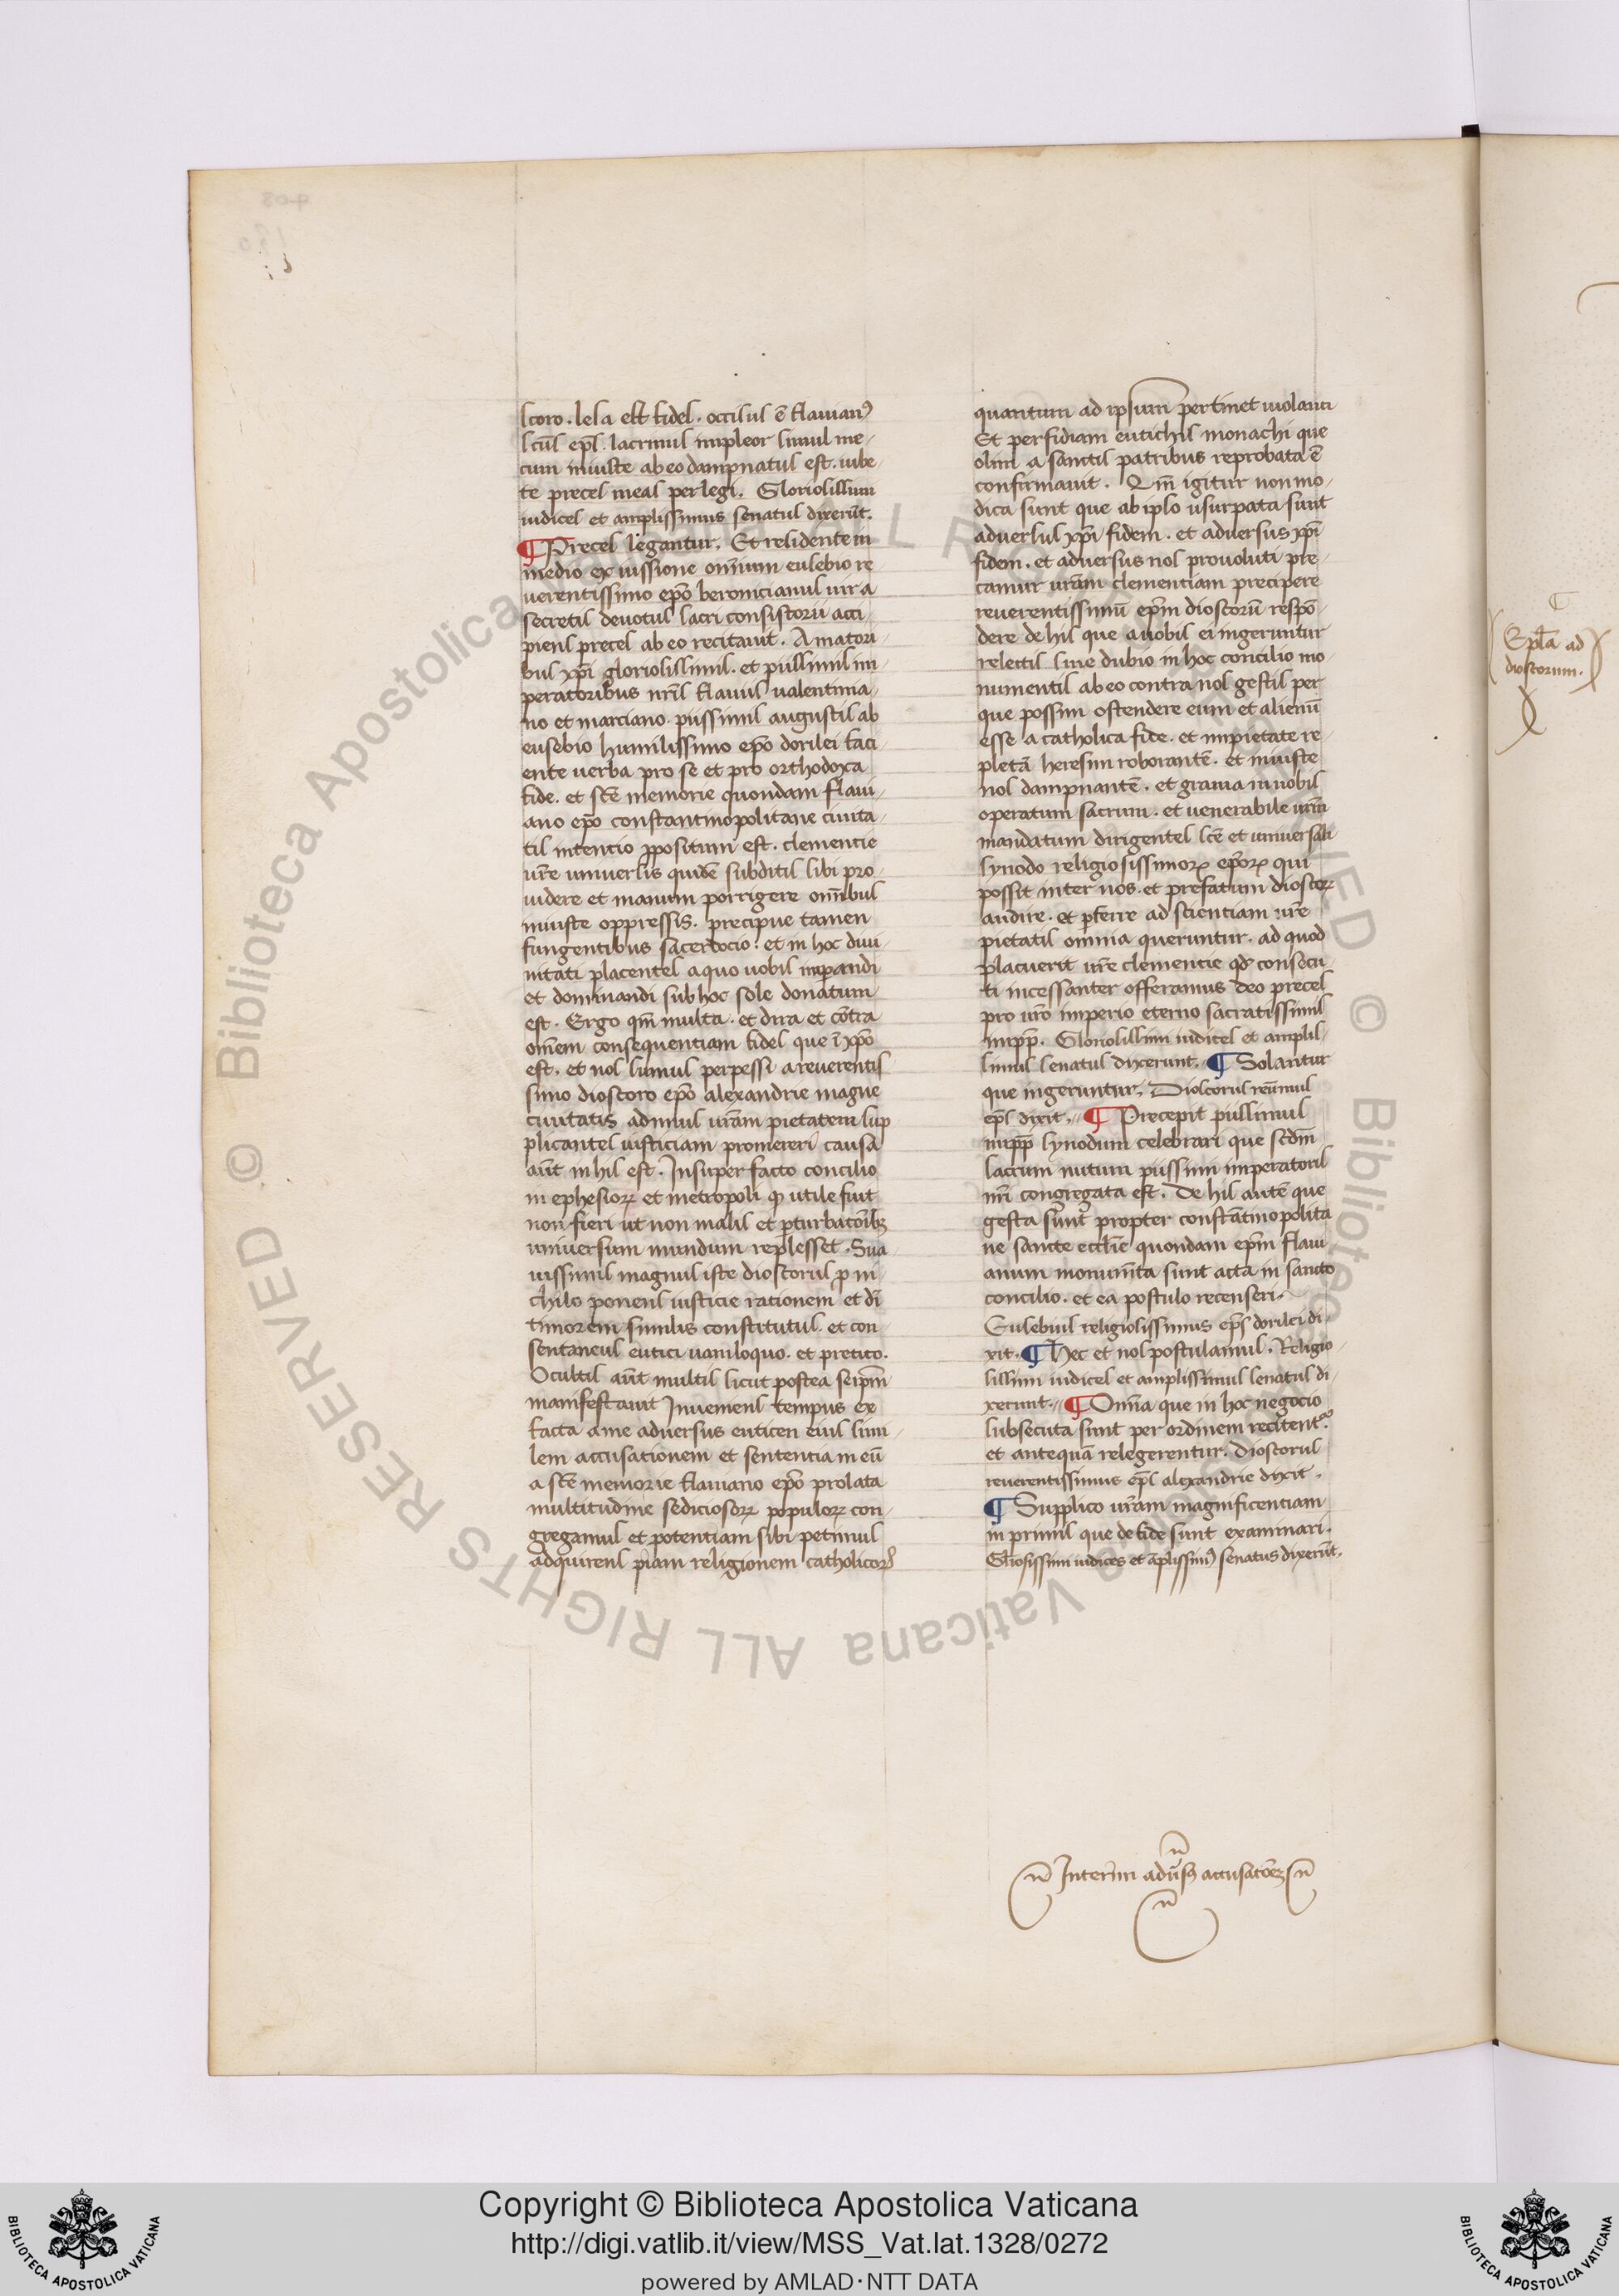 scoro. lesa est fides. occisus ē flavianꝰ
scūs ep̄s. lacrimis impleor simul me-
cum iniuste ab eo dampnatus est. iube-
te preces meas perlegi. Gloriosissimi
iudices et amplissimus senatus dixerūt.
¶ Preces legantur. Et residente in
medio ex iussione om̄ium eusebio re-
uerentissimo ep̄o beronicianus uir a
secretis deuotus sacri consistorii acci-
piens preces ab eo recitauit. Amatori-
bus xp̄i gloriosissimis. et piissimis im-
peratoribus nr̄is flauiis ualentinia-
no et marciano. piissimis augustis ab
eusebio humilissimo ep̄o dorilei faci-
ente uerba pro se et pro orthodoxa
fide. et scē memorie quondam flaui-
ano ep̄o constantinopolitane ciuita-
tis intentio ꝓpositum est. clementie
ur̄e uniuersis quidē subditis sibi pro-
uidere et manum porrigere om̄ibus
iniuste oppressis. precipue tamen
fungentibus sacerdocio. et in hoc diui-
nitati placentes a quo uobis imꝑandi
et dominandi sub hoc sole donatum
est. Ergo qm̄ multa. et dira et cōtra
om̄em consequentiam fidei que ī xp̄o
est. et nos sumus perpessi a reuerentis
simo dioscoro ep̄o alexandrie magne
ciuitatis adimus ur̄am pietatem sup
plicantes iusticiam promereri causa
aūt in his est. Insuper facto concilio
in ephesioꝝ et metropoli ꝙ utile fuit
non fieri ut non malis et ꝑturbatōibꝫ
uniuersum mundum replesset. Sua
uissimus magnus iste dioscorus ꝓ ni-
chilo ponens iusticie rationem et dī
timorem similis constitutus. et con-
sentaneus eutici uaniloquo. et pretito.
Ocultis aūt multis sicut postea seip̄m
manifestauit Inueniens tempus ex
facta a me aduersus euticen eius simi-
lem accusationem et sententia in eū
a scē memorie flauiano ep̄o prolata
multitudine sediciosoꝝ populoꝝ con-
gregamus et potentiam sibi petimus
adquirens piam religionem catholicoꝝ
quantum ad ipsum pertinet uiolauit
Et perfidiam eutichis monachi que
olim a sanctis patribus reprobata ē
confirmauit. Qm̄ igitur non mo-
dica sunt que ab ipso usurpata sunt
aduersus xp̄i fidem. et aduersus xp̄i
fidem. et aduersus nos prouoluti pre-
camur ur̄am clementiam precipere
reuerentissimū ep̄m dioscorū respō-
dere de his que a nobis ei ingeruntur
relectis sine dubio in hoc concilio mo-
numentis ab eo contra nos gestis per
que possim ostendere eum et alienū
esse a catholica fide. et impietate re-
pletā heresim roborantē. et iniuste
nos dampnantē. et grauia in nobis
operatum sacrum. et uenerabile ur̄m
mandatum dirigentes scē et uniuersali
synodo religiosissimoꝝ ep̄oꝝ qui
possit inter nos. et prefatum dioscoꝝ
audire. et ꝑferre ad scientiam ur̄e
pietatis omnia queruntur. ad quod
placuerit ur̄e clementie qd̄ consecu-
ti incessanter offeramus deo preces
pro ur̄o imperio eterno sacratissimis
impp̄. Gloriosissimi iudices et amplis-
simus senatus dixerunt. ¶ Soluantur
que ingeruntur. Dioscorus reūimus
ep̄s dixit. ¶ Precepit piissimus
impp̄ synodum celebrari que scd̄m
sacrum nutum piissimi imperatoris
nr̄i congregata est. De his autē que
gesta sunt propter constātinopolita
ne sancte ecclīe quondam ep̄m flaui
anum monum̄ta sunt acta in sancto
concilio. et ea postulo recenseri.
Eusebius religiosissimus ep̄s dorilei di-
xit. ¶ Hec et nos postulamus. Religio-
sissimi iudices et amplissimus senatus di-
xerunt. ¶ Omīa que in hoc negocio
subsecuta sunt per ordinem recitent᷑.
et antequā relegerentur. Dioscorus
reuerentissimus ep̄s alexandrie dixit.
¶ Supplico ur̄am magnificentiam
in primis que de fide sunt examinari.
Gl̄iosissimi iudices et āplissimꝰ senatus dixerūt.
Interim adūsꝫ accusatōeꝫ
Epl̄a ad
dioscorum.
Copyright © Biblioteca Apostolica Vaticana
http://digi.vatlib.it/view/MSS_Vat.lat.1328/0272
powered by AMLAD·NTT DATA
BIBLIOTECA APOSTOLICA VATICANA
BIBLIOTECA APOSTOLICA VATICANA
© Biblioteca Apostolica Vaticana ALL RIGHTS RESERVED